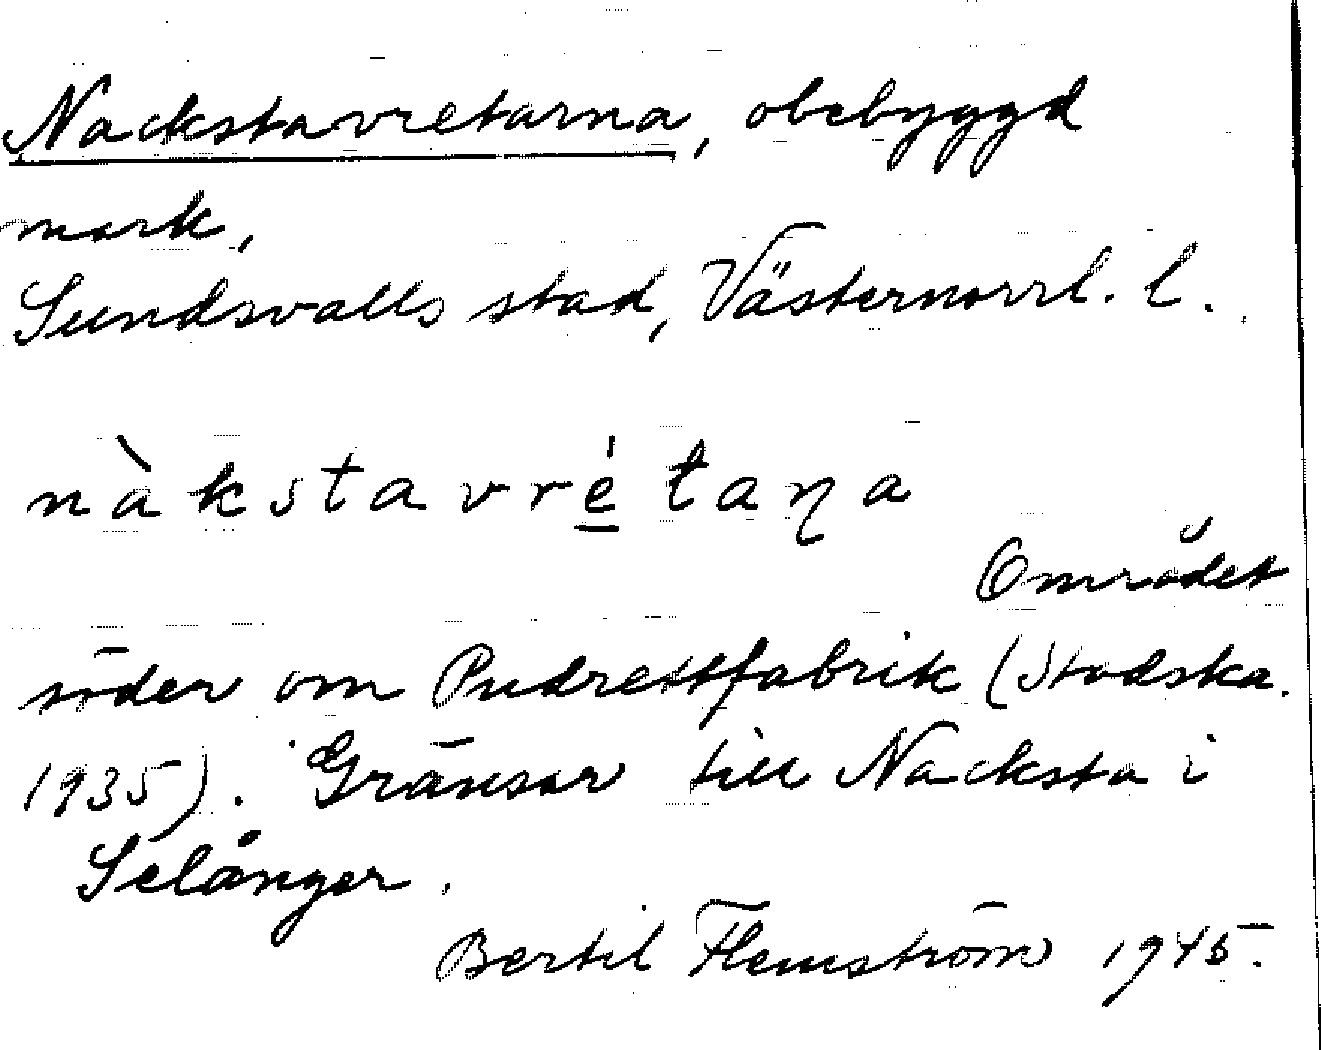 Nackstavretarna, obebyggd
mark,
Sundsvalls stad, Västernorrl. l.
nàkstavré̲taṇa
Området
söder om Pudrettfabrik (Stadska.
1935). Gränsar till Nacksta i
Selånger.
Bertil Flemström 1945.